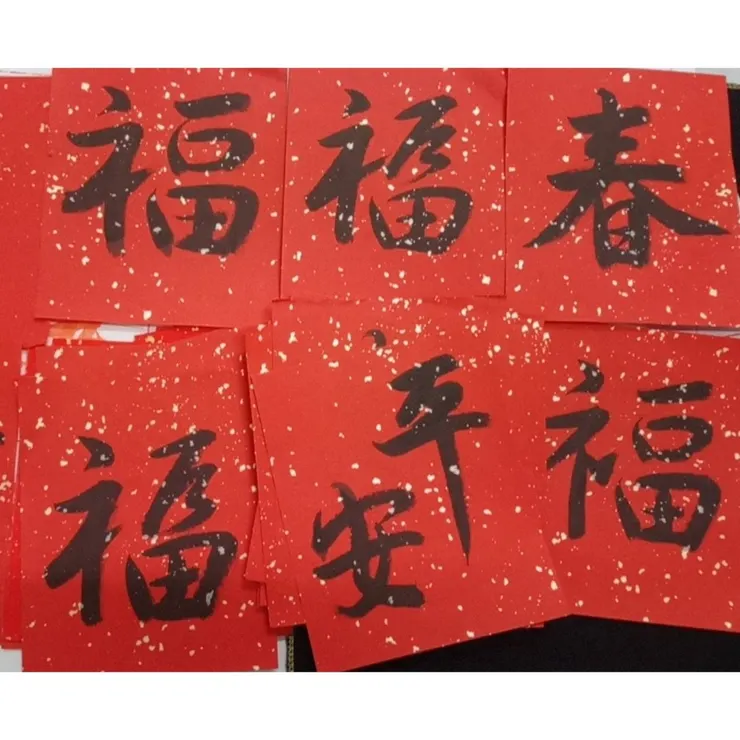 福
福
春
福
平安
福